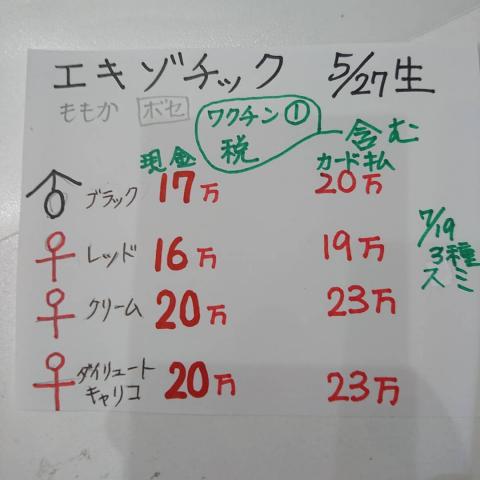 エキゾチック 5/27生
ももか ボセ
ワクチン①
税
含む
現金
カードキム
ブラック 17万 20万
レッド 16万 19万
7/19
3種
スミ
クリーム 20万 23万
ダイリュート
キャリコ 20万 23万